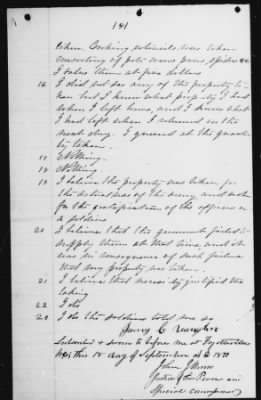 181
taken. Cooking utensils were taken
consisting of pots ovens pans, spider &c
I value them at five dollars
16 I did not see any of the property ta-
ken but I knew what property I had
when I left home, and I knew what
I had left when I returned on the
next day. I guessed at the quanti-
ty taken.
17 Nothing.
18 Nothing.
19 I believe the property was taken for
the actual use of the army and not
for the gratification of the officer or
a soldier
20 I believe that the government failed to
supply them at that time, and it
was in consequence of such failure
that my property was taken
21 I believe that necessity justified the
taking
22 I do
23 I do the soldiers told me so
Sworn & sworn to before me at Fayetteville
this 18 day of September A D 1871
John
Justice of the Peace and
Special commissioner